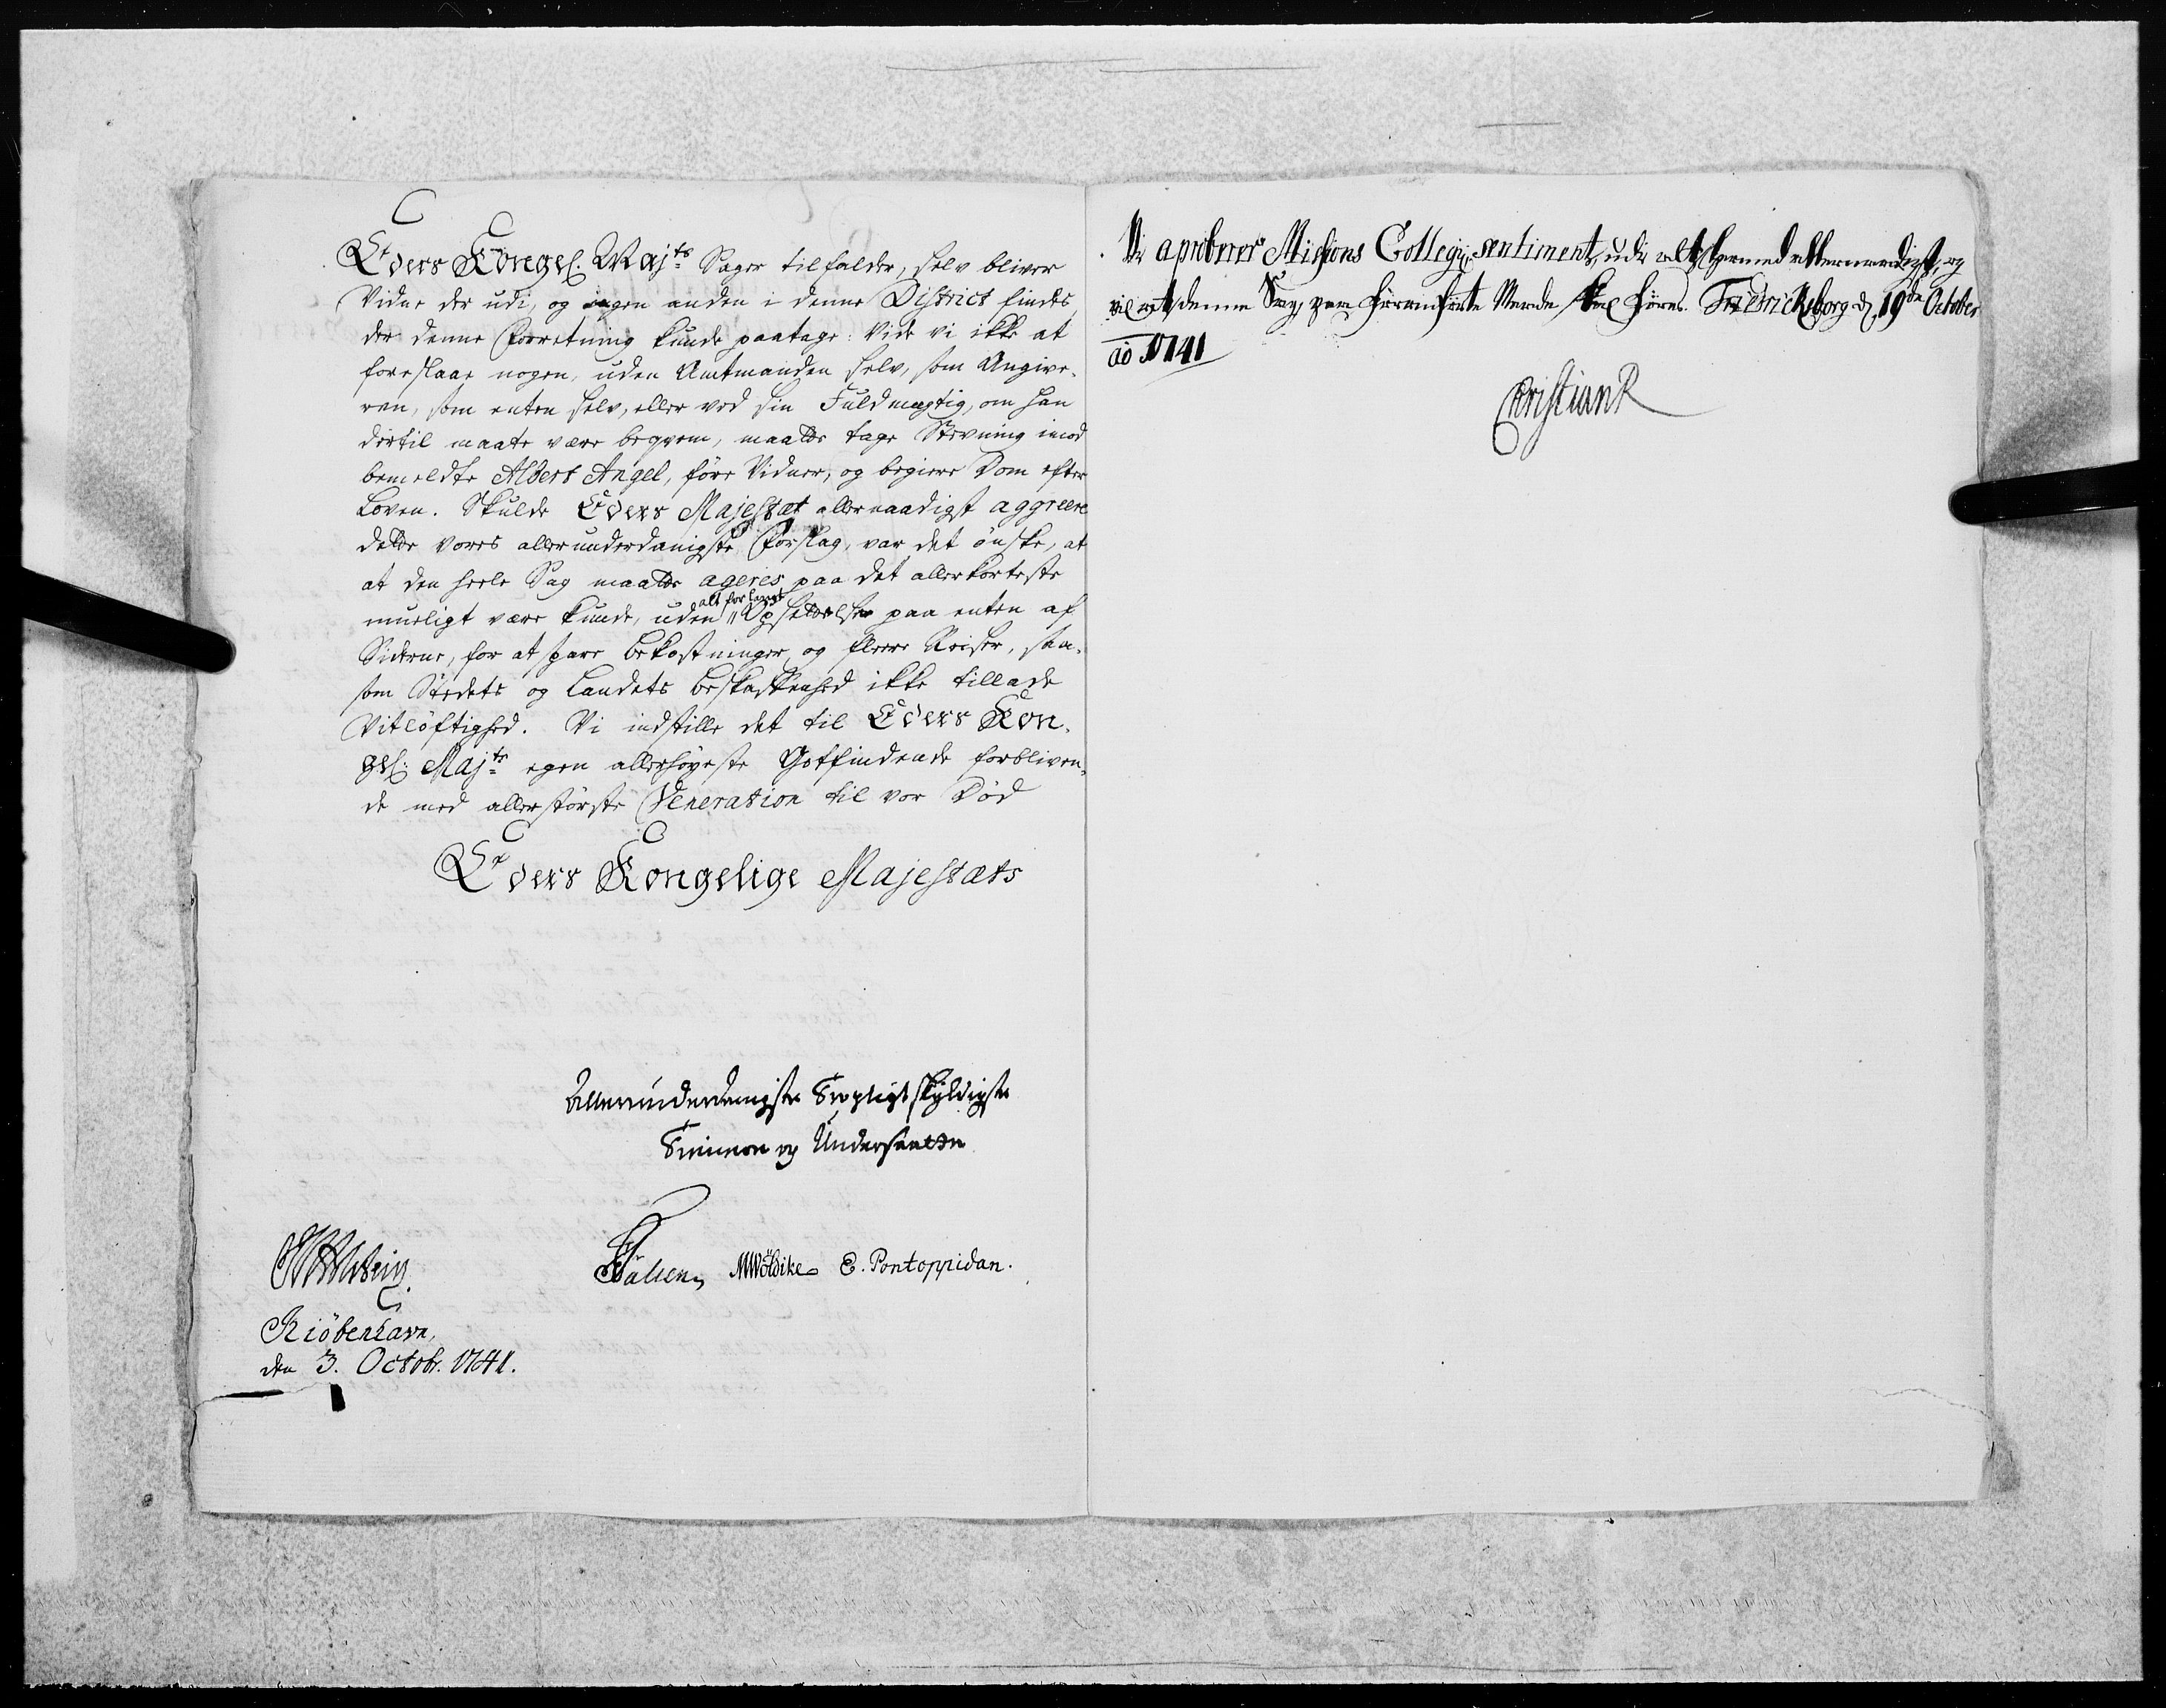 Eders Kongel. Maj:ts Sager tilfalder, selv bliver
Vidne der udi, og ingen anden i denne District findes
der denne Forretning kunde paatage: Vide vi ikke at
foreslaae nogen, uden Amtmanden selv, som Angive-
ren, som enten selv, eller ved sin Fuldmegtig, om han
dertil maate være beqvem, maatte tage Stevning imod
bemeldte Albert Angel, före Vidner, og begiere Dom efter
Loven. Skulde Eders Majestæt allernaadigst aggreere
dette vores allerunderdanigste Forslag, var det önske, at
at den heele Sag maatte ageres paa det allerkorteste
alt for langt
mueligt være kunde, uden Opsettelse paa enten af
Siderne, for at spare Bekostninger og fleere Reiser, saa-
som Stedets og Landets Beskaffenhed ikke tillade
Vitlöftighed. Vi indstille det til Eders Kon-
gel: Maj:ts egen allerhöyeste Gotfindende forbliven-
de med allerstörste Veneration til vor Död
Eders Kongelige Majestæts
Allerunderdanigste Troepligtskyldigste
Tienere og Undersaatter
Holstein
FFalsen MWöldike E. Pontoppidan.
Kiöbenhavn,
den 3. Octobr. 1741.
Vi aproberer Missions Collegij sentiment, udi alt hermed allernaadigst, og
vil at denne Sag, paa foranförte Maade skal föres. Fridericksborg d, 19de October
ao 1741
Christian R